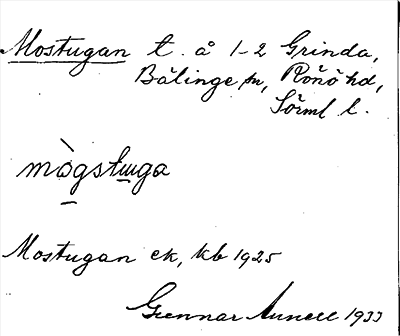 Mostugan t. å 1-2 Grinda,
Bälinge sn, Rönö hd,
Sörml l.
mo̗gstuga
Mostugan ek, kb 1925
Gunnar Annell 1933